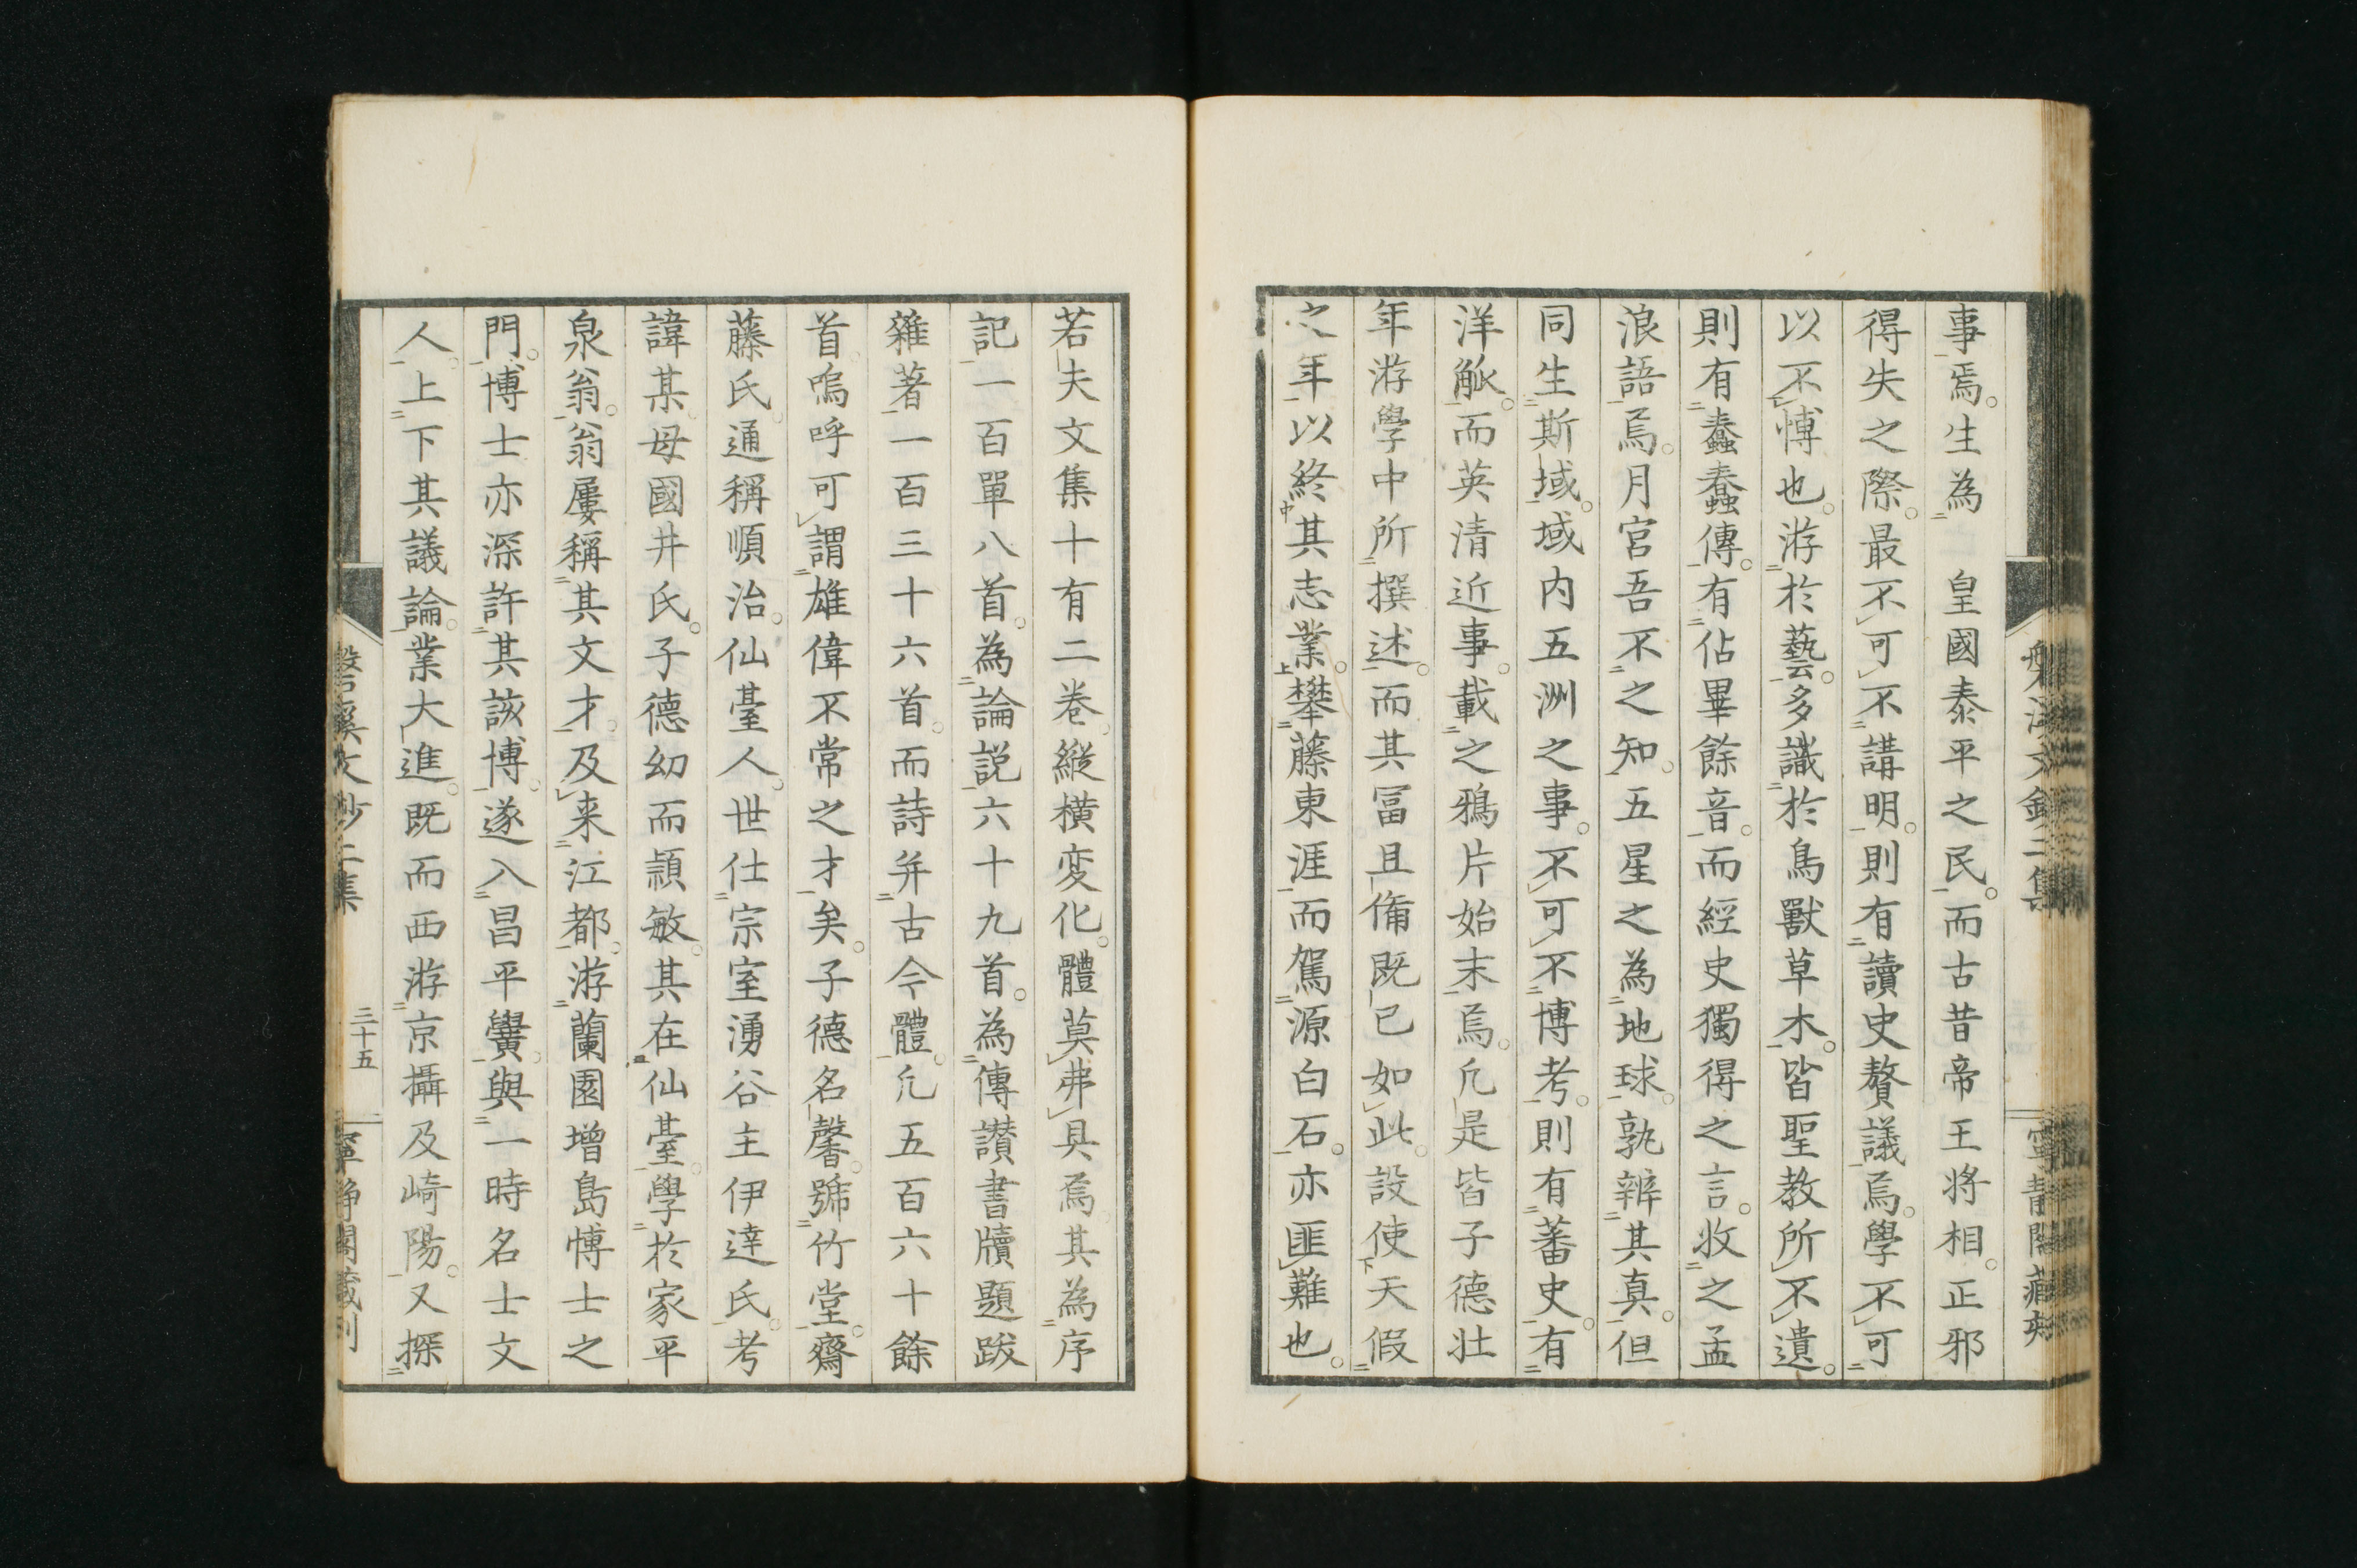 事焉。生為　皇國泰平之民。而古昔帝王将相。正邪
得失之際。最不可不講明。則有讀史贅議焉。學不可
以不博也。游於藝。多識於鳥獸草木。皆聖教所不遺。
則有蠧蠢傳。有佔畢餘音。而經史獨得之言。收之孟
浪語焉。月宮吾不之知。五星之為地球。孰辨其真。但
同生斯域。域内五洲之事。不可不博考。則有蕃史。有
洋觚。而英清近事。載之鴉片始末焉。凢是皆子德壮
年游學中所撰述。而其冨且俻既已如此。設使天假
之年以終其志業。攀藤東涯而駕源白石。亦匪難也。
若夫文集十有二巻。縦横変化。體莫弗具焉。其為序
記一百單八首。為論説六十九首。為傳讃書牘題跋
雜著一百三十六首。而詩并古今體。凢五百六十餘
首。嗚呼可謂雄偉不常之才矣。子德名馨。號竹堂。齋
藤氏。通稱順治。仙臺人。世仕宗室湧谷主伊達氏。考
諱某。母國井氏。子德幼而頴敏。其在仙臺。學於家平
泉翁。翁屢稱其文才。及来江都。游蘭園增島博士之
門。博士亦深許其該博。遂入昌平黌。與一時名士文
人。上下其議論。業大進。既而西游京攝及崎陽。又探
三十五